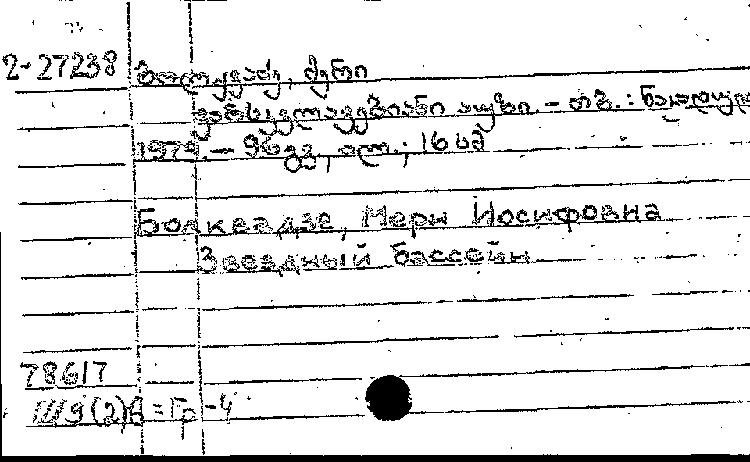 2-27238 ბოლქვაძე, მერი
ვარსკვლავებიანი აუზი. – თბ.: ნაკადული
1979. – 96 გვ., ილ.; 16 სმ
Болквадзе, Мери Иосифовна
Звездный бассейн
78617
Ш9(2)6=Гр-4